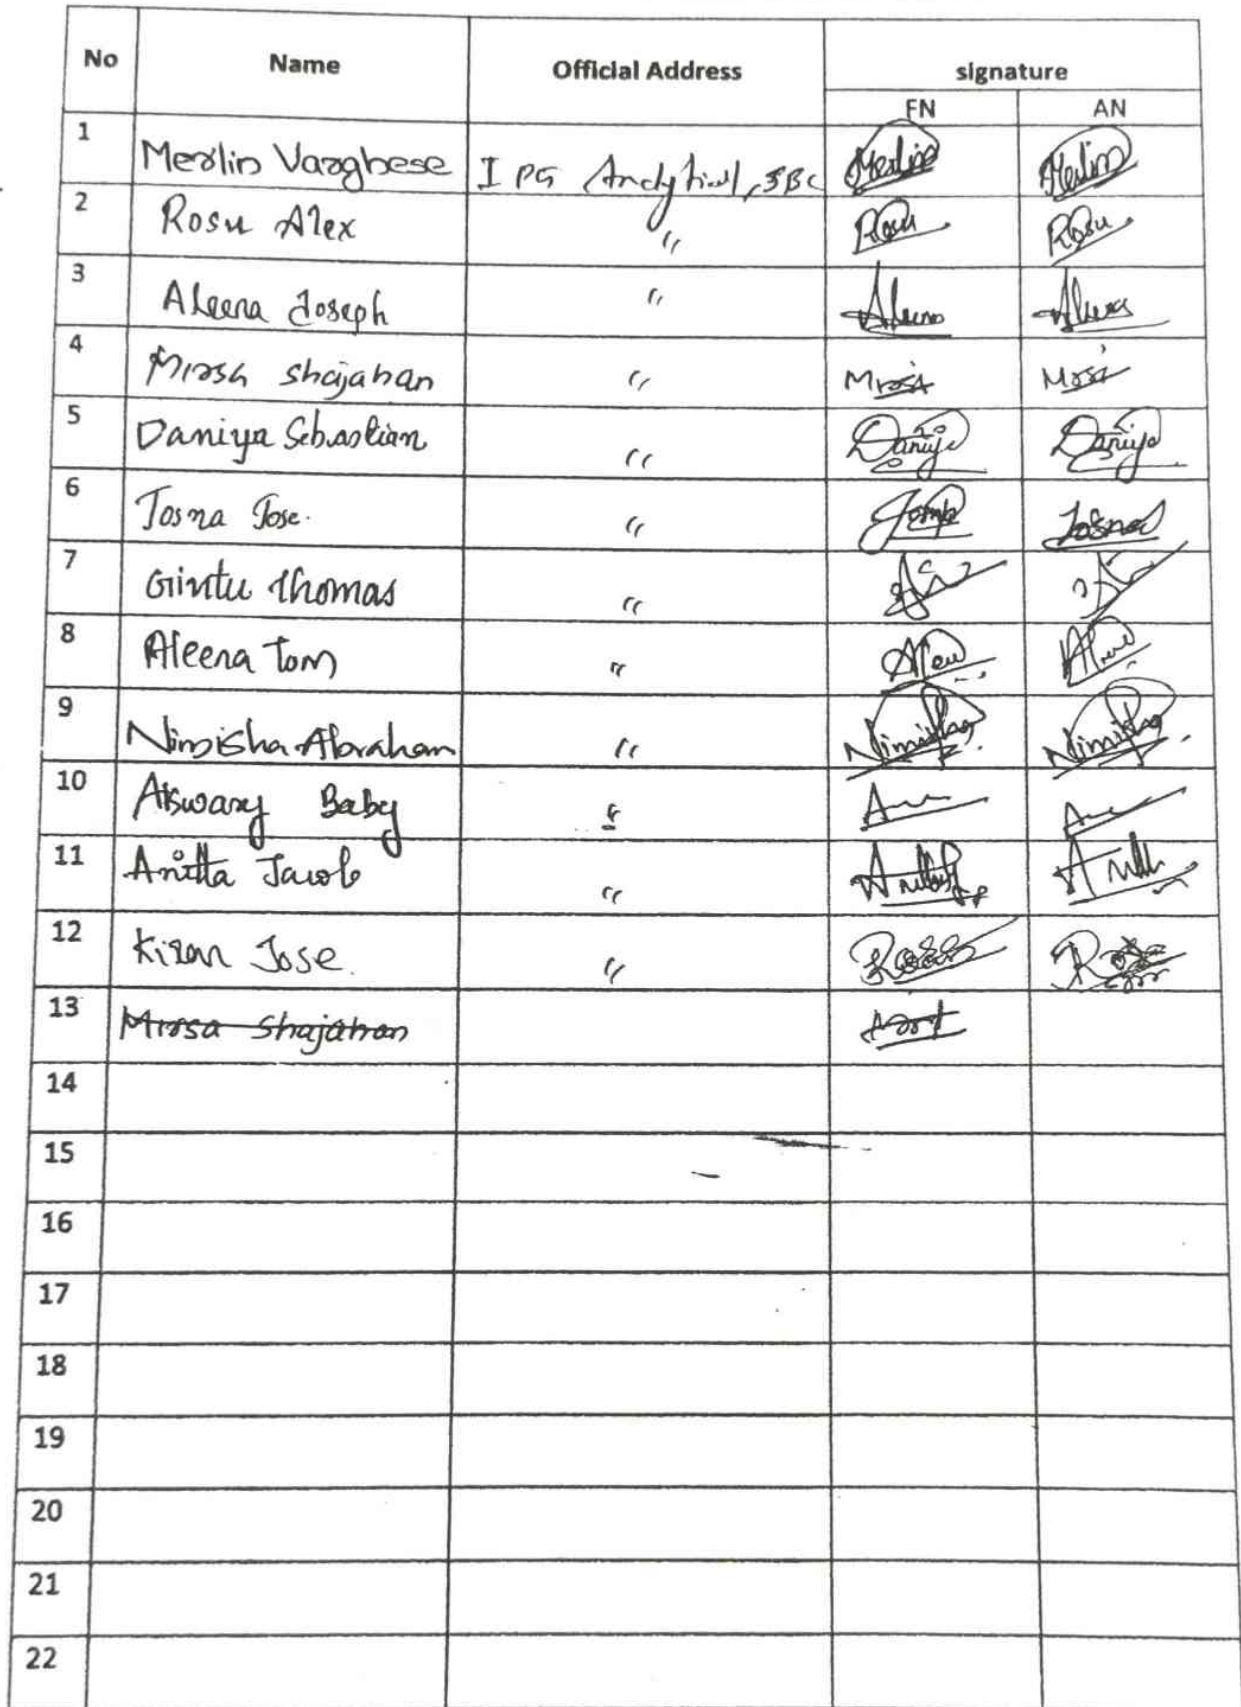 No Name Official Address signature
FN AN
1 Merlin Varghese I PG Analytical, SBC Merlin Merlin
2 Rosu Alex " Rosu Rosu
3 Aleena Joseph " Aleena Aleena
4 Mirsa shajahan " Mirsa Mirsa
5 Daniya Sebastian " Daniya Daniya
6 Josna Jose. " Josna
7 Gintu Thomas "
8 Aleena Tom "
9 Nimisha Abraham " Nimisha Nimisha
10 Aiswary Baby "
11 Anitta Jacob "
12 Kiran Jose. "
13 Mirsa Shajahan
14
15
16
17
18
19
20
21
22